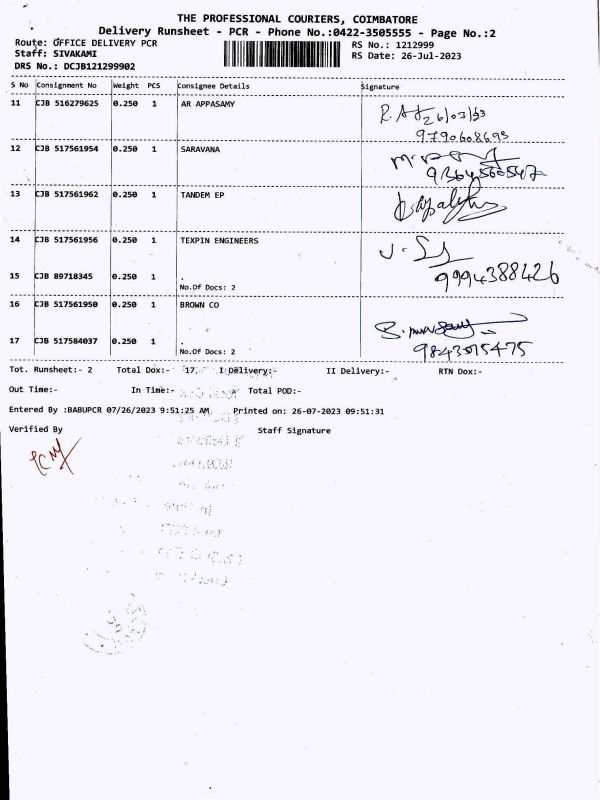 THE PROFESSIONAL COURIERS, COIMBATORE
Delivery Runsheet - PCR - Phone No.:0422-3505555 - Page No.:2
Route: OFFICE DELIVERY PCR RS No.: 1212999
Staff: SIVAKAMI RS Date: 26-Jul-2023
DRS No.: DCJB121299902
S No Consignment No Weight PCS Consignee Details Signature
11 CJB 516279625 0.250 1 AR APPASAMY
26/07/23
9790608693
12 CJB 517561954 0.250 1 SARAVANA
9364560547
13 CJB 517561962 0.250 1 TANDEM EP
14 CJB 517561956 0.250 1 TEXPIN ENGINEERS
15 CJB 89718345 0.250 1 . 9994388426
No.Of Docs: 2
16 CJB 517561950 0.250 1 BROWN CO
17 CJB 517584037 0.250 1 . 9843015475
No.Of Docs: 2
Tot. Runsheet:- 2 Total Dox:- 17 I Delivery:- II Delivery:- RTN Dox:-
Out Time:- In Time:- Total POD:-
Entered By :BABUPCR 07/26/2023 9:51:25 AM Printed on: 26-07-2023 09:51:31
Verified By Staff Signature